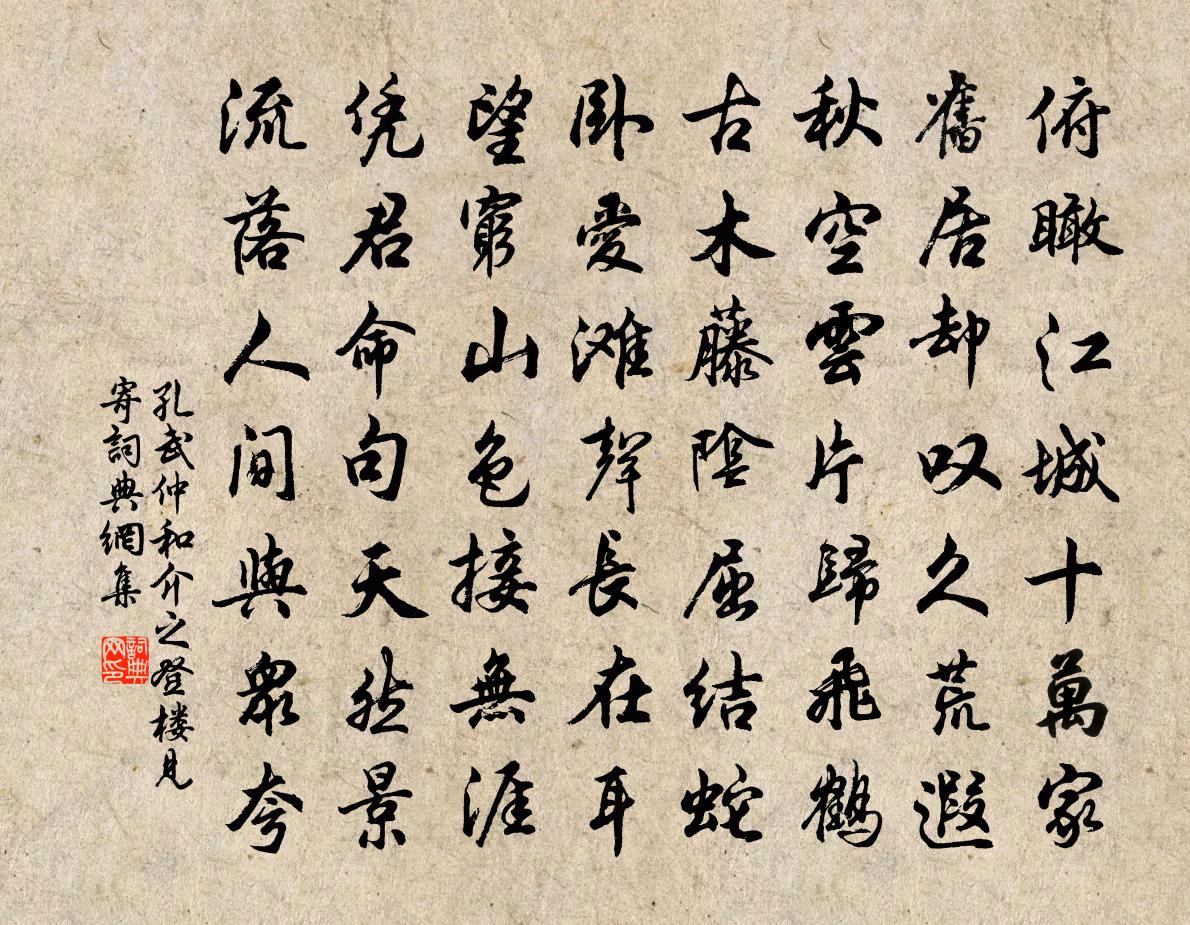 俯瞰江城十萬家
舊居却叹久荒遐
秋空雲片歸飛鶴
古木藤陰屈結蛇
卧愛滩聲長在耳
望窮山色接無涯
凭君命句天然景
流落人间與眾夸
孔武仲和介之登楼见
寄詞典網集
詞典
网印